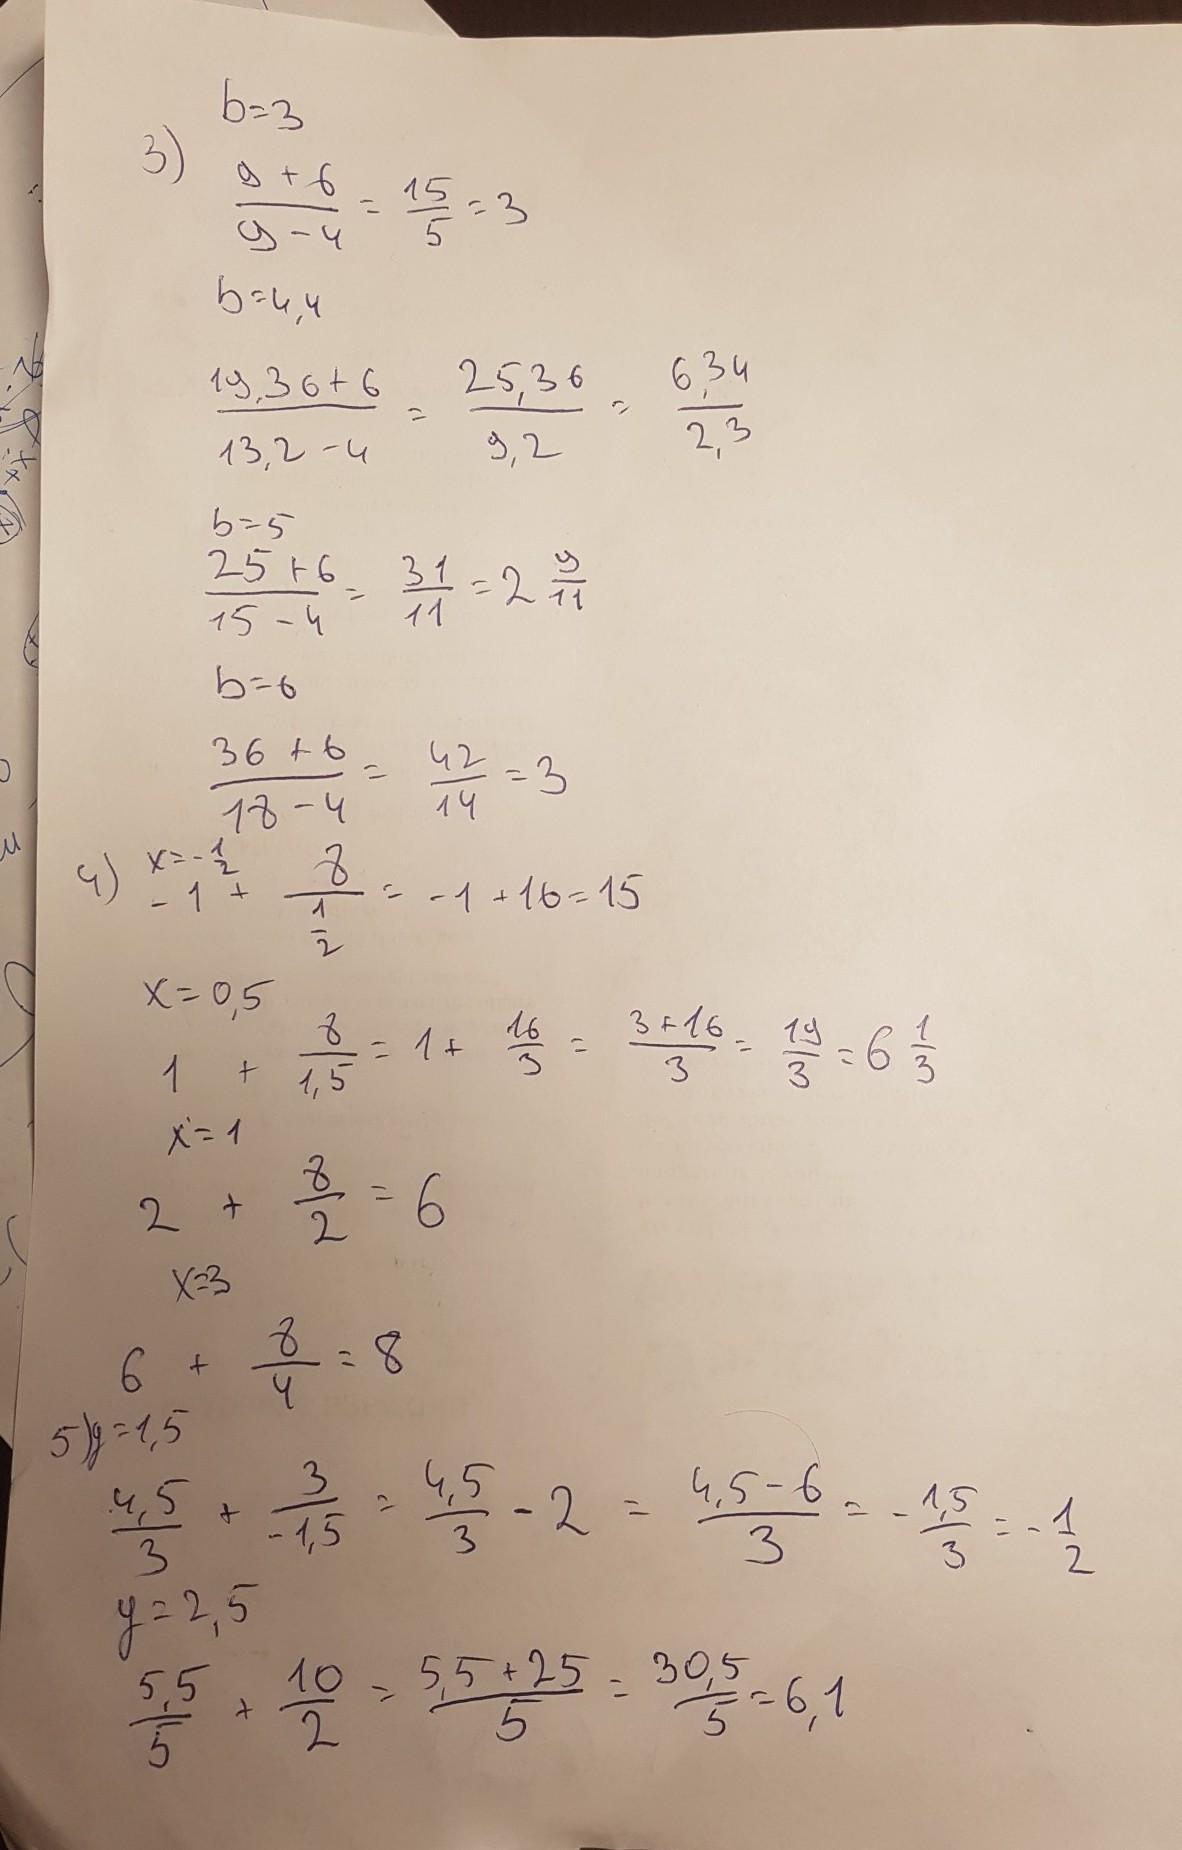 b=3
3) 9+6/9-4 = 15/5 = 3
b=4,4
19,36+6/13,2-4 = 25,36/9,2 = 6,34/2,3
b=5
25+6/15-4 = 31/11 = 2 9/11
b=6
36+6/18-4 = 42/14 = 3
4) x=-1/2
-1 + 8/1/2 = -1+16=15
x=0,5
1 + 8/1,5 = 1+ 16/3 = 3+16/3 = 19/3 = 6 1/3
x=1
2 + 8/2 = 6
x=3
6 + 8/4 = 8
5) y=1,5
4,5/3 + 3/-1,5 = 4,5/3 - 2 = 4,5-6/3 = -1,5/3 = -1/2
y=2,5
5,5/5 + 10/2 = 5,5+25/5 = 30,5/5 = 6,1